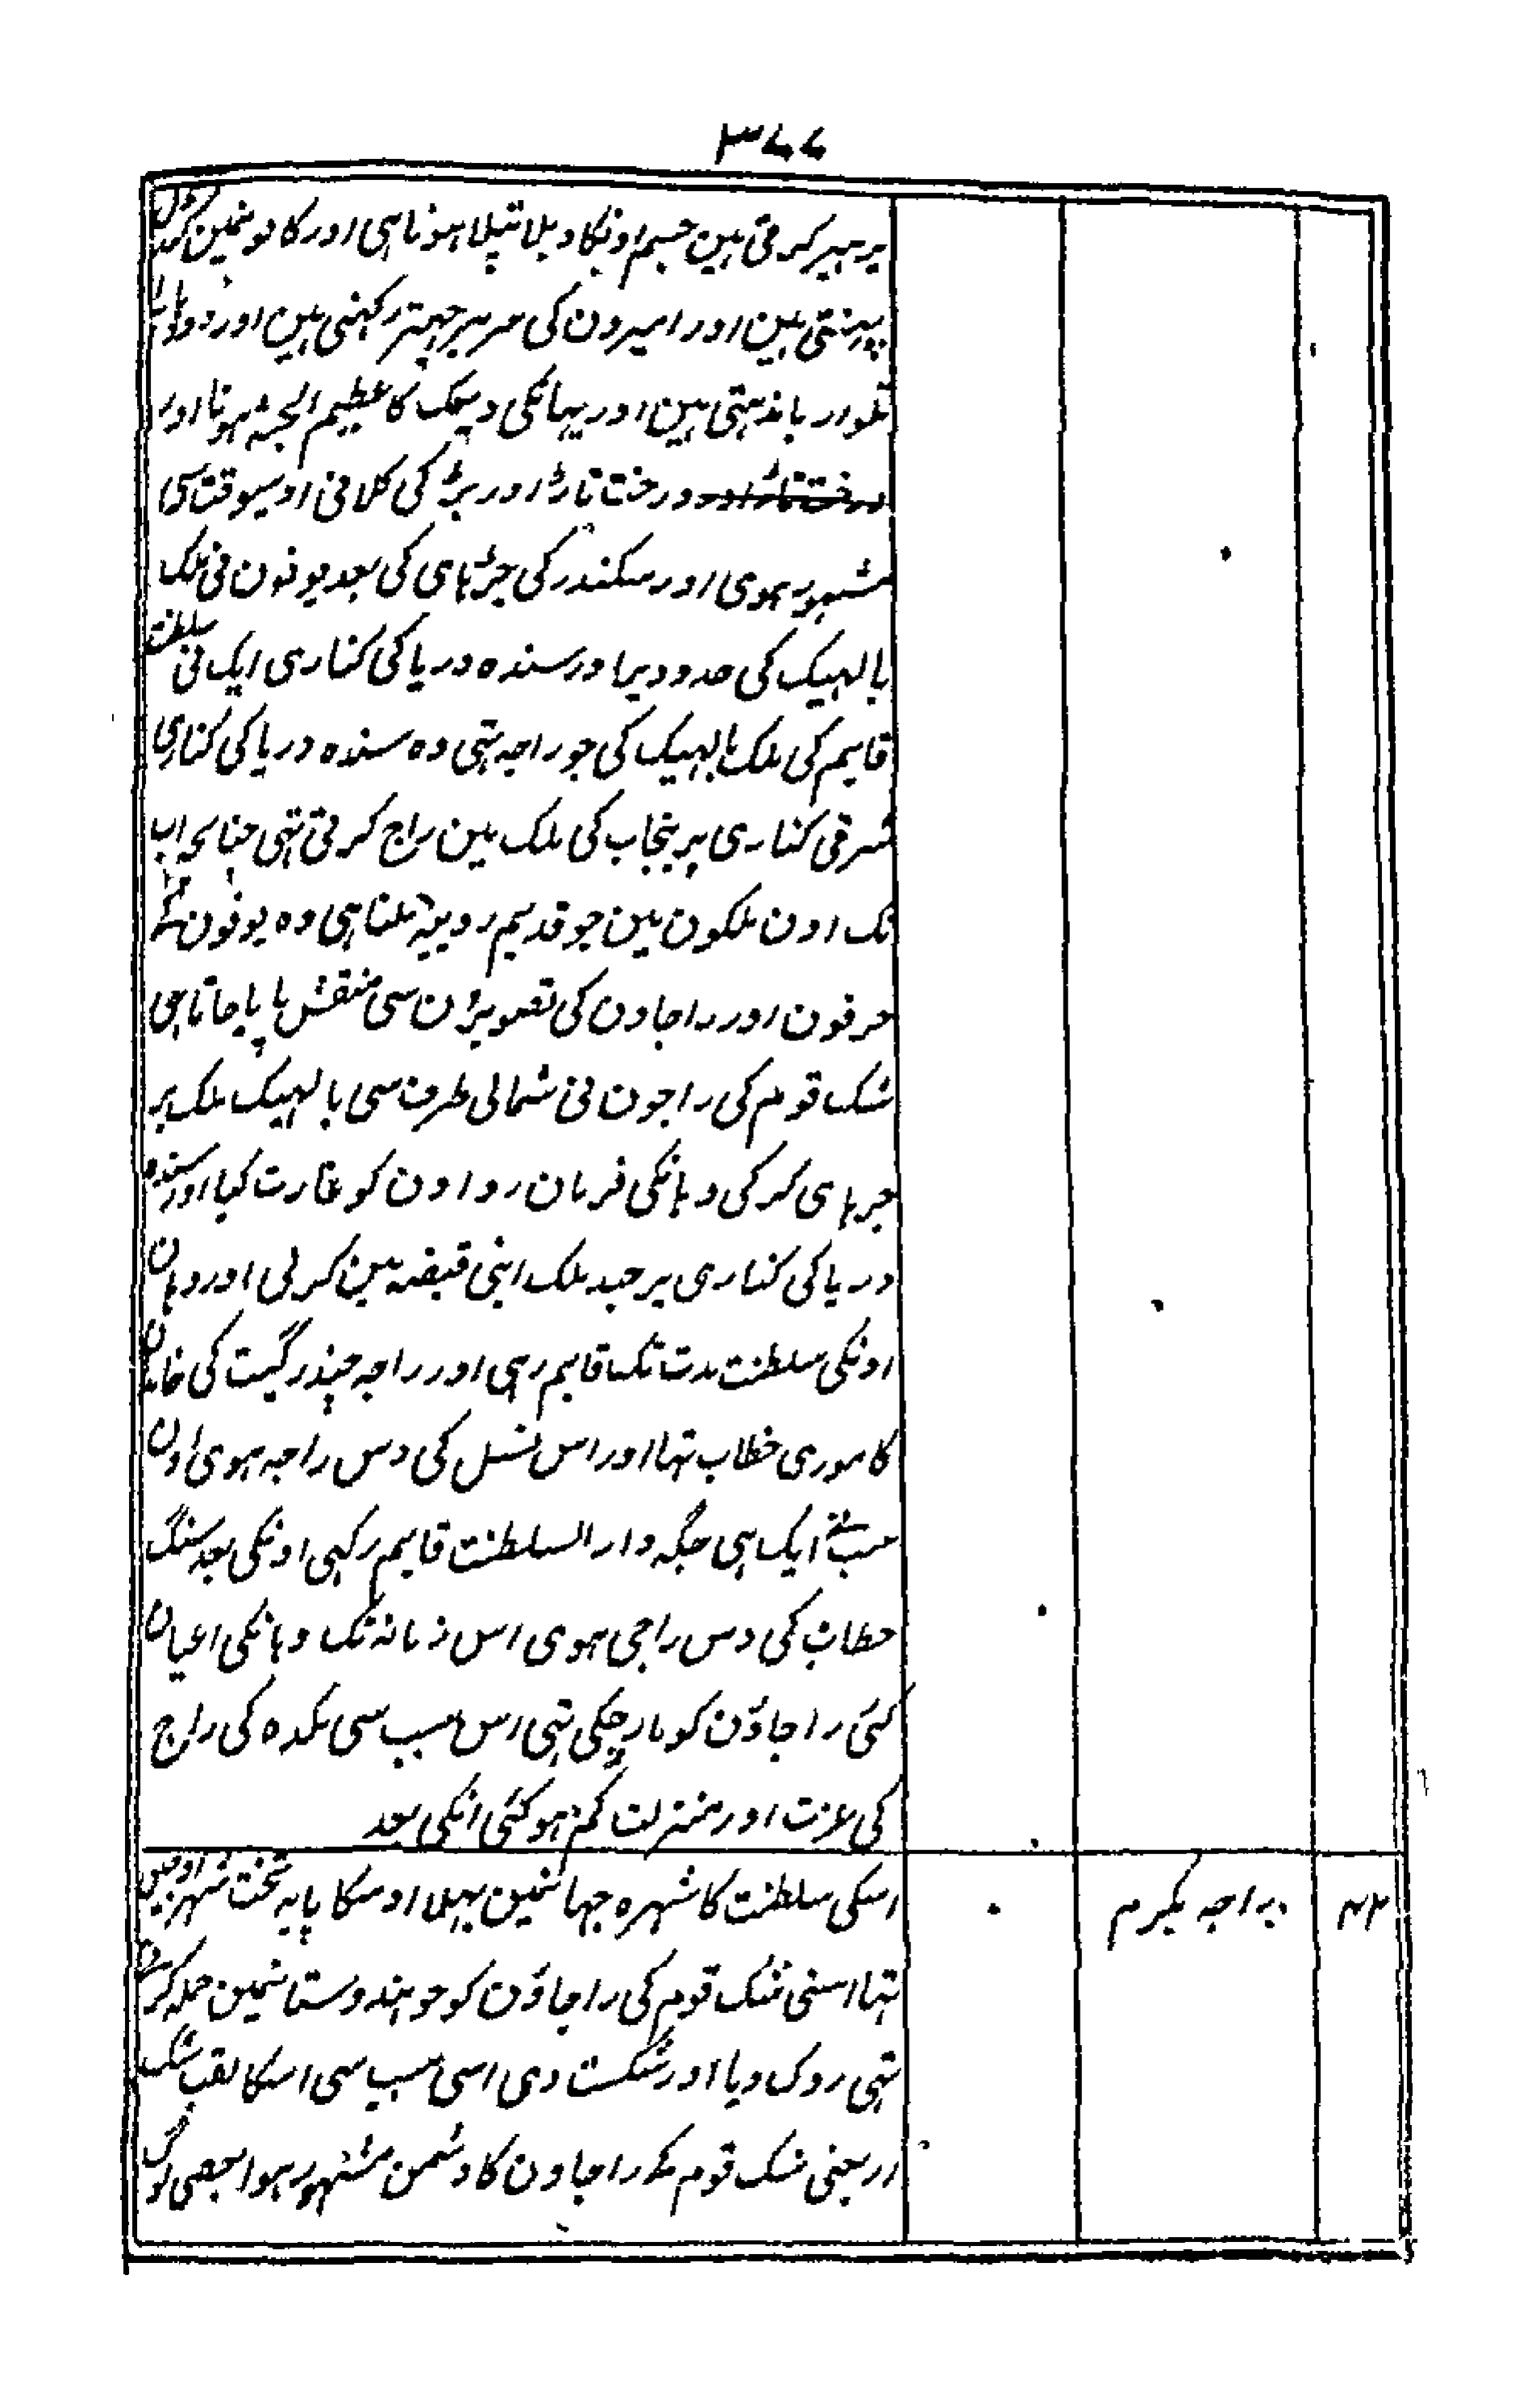 ۳۴۴
پرہیز کرتی ہین جسم اونکا دبلا پتلا ہوتا ہی اور کانونمین کرن
پہنتی ہین اور امیرون کی سرپر چہتر رکہتی ہین اور
تلوار باندہتی ہین اور یہانکی دیمک کا عظیم الجثہ ہونا اور
درخت تاڑ اور بڑ کی کلانی اوسیوقت سی
مشہور ہوی اور سکندر کی چڑہای کی بعد یونون نی ملک
بالہیک کی حدود پر اور سندہ دریا کی کناری ایک نی سلطنت
قایم کی ملک بالہیک کی جو راجہ تہی وہ سندہ دریا کی کناری
شرقی کناری پر پنجاب کی ملک مین راج کرتی تہی چنانچہ اب
تک اون ملکون مین جو قدیم روپیہ ملتا ہی وہ یونون کے
حرفون اور راجاون کی تصویرون سی منقش پایا جاتا ہی
شک قوم کی راجون نی شمالی طرف سی بالہیک ملک پر
چرہای کرکی وہانکی فرمان رواون کو غارت کیا اور سندہ
دریا کی کناری پر چند ملک اپنی قبضہ مین کرلی اور وہان
اونکی سلطنت مدت تک قایم رہی اور راجہ چندرگپت کی خاندان
کا موری خطاب تہا اور اس نسل کی دس راجہ ہوی اون
سب نے ایک ہی جگہ دار السلطنت قایم رکہی اونکی بعد سنگ
خطاب کی دس راجی ہوی اس زمانہ تک وہانکی اعیان
کئی راجاؤن کو مار چکی تہی اس سبب سی مکدہ کی راج
کی عزت اور منزلت کم ہوگئی انکی بعد
۴۲ راجہ بکرم ۰ اسکی سلطنت کا شہرہ جہانمین پہیلا اوسکا پایہ تخت شہر اوجین
تہا اسنی شک قوم کی راجاؤن کو جو ہندوستانمین حملہ کرتی
تہی روک دیا اور شکست دی اسی سبب سی اسکا لقب شک
ار یعنی شک قوم کہ راجاون کا دشمن مشہور ہوا بعضی لوگ